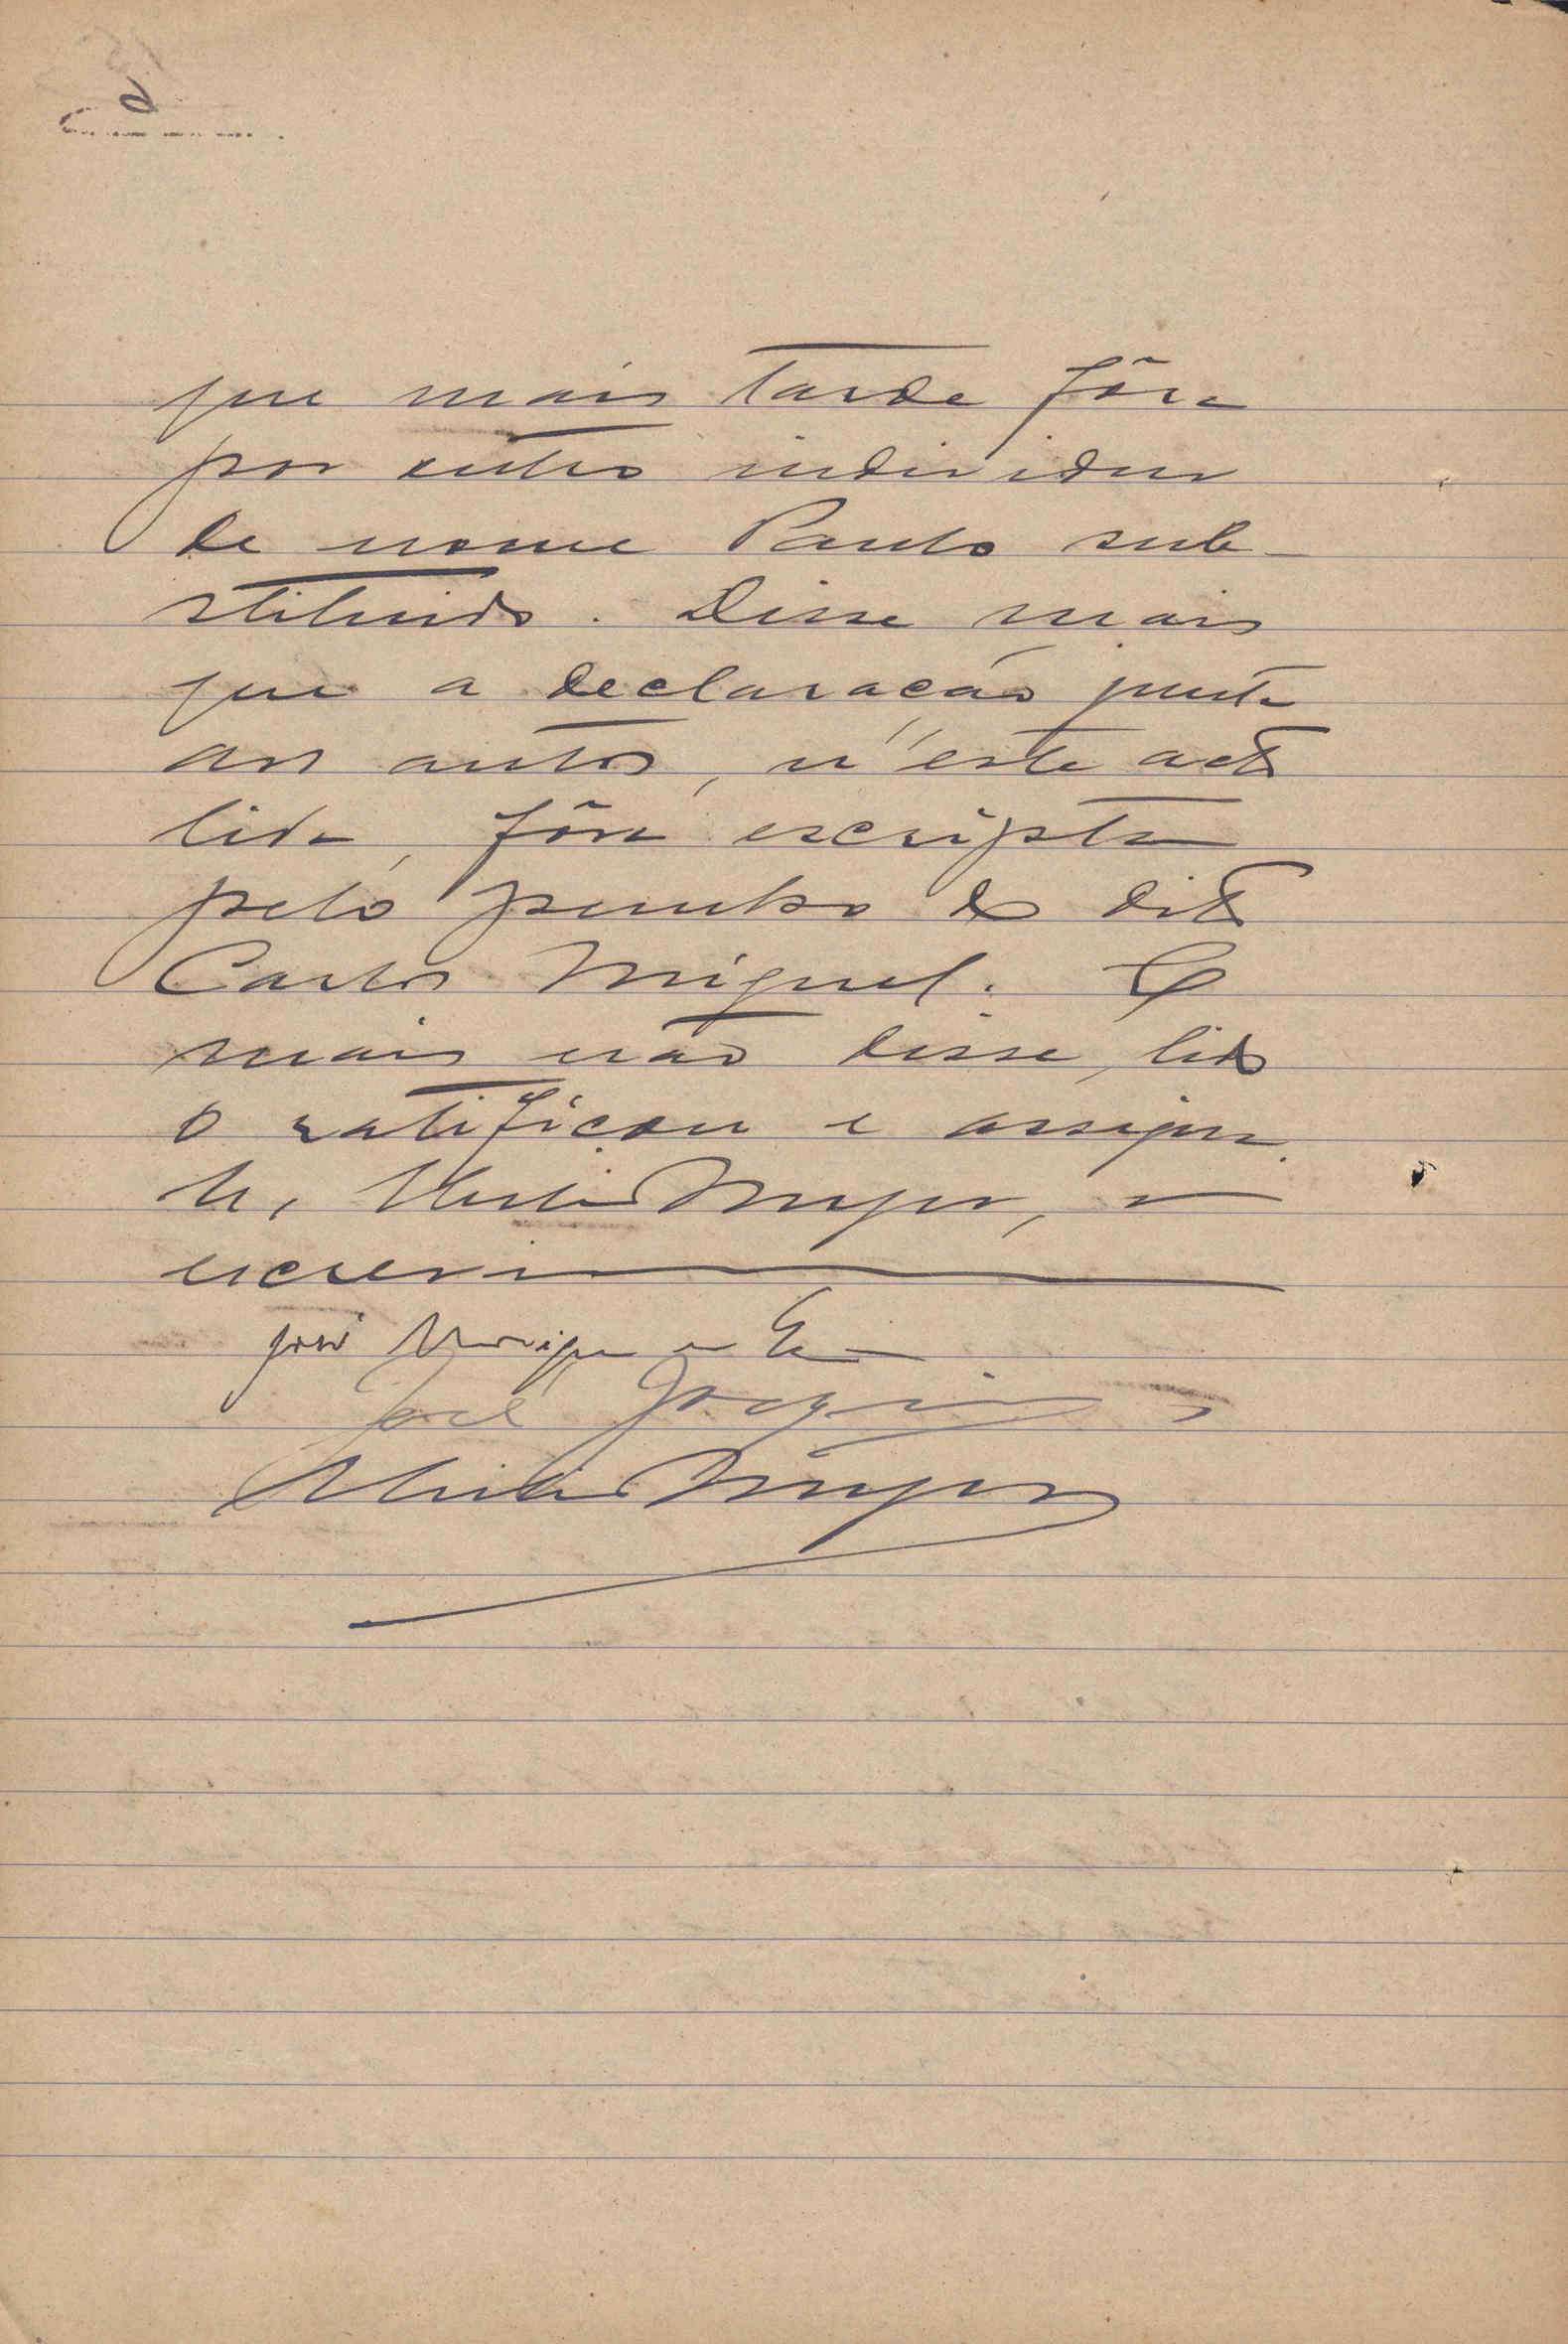 que mais tarde fôra
por outro individuo
de nome Paulo sub-
stituido. Disse mais
que a declaração junta
aos autos, n'este acto
lida, fôra escripta
pelo punho do dito
Carlos Miguel. E
mais não disse, lido
o ratificou e assigna.
escrevi
José
José Joaquim